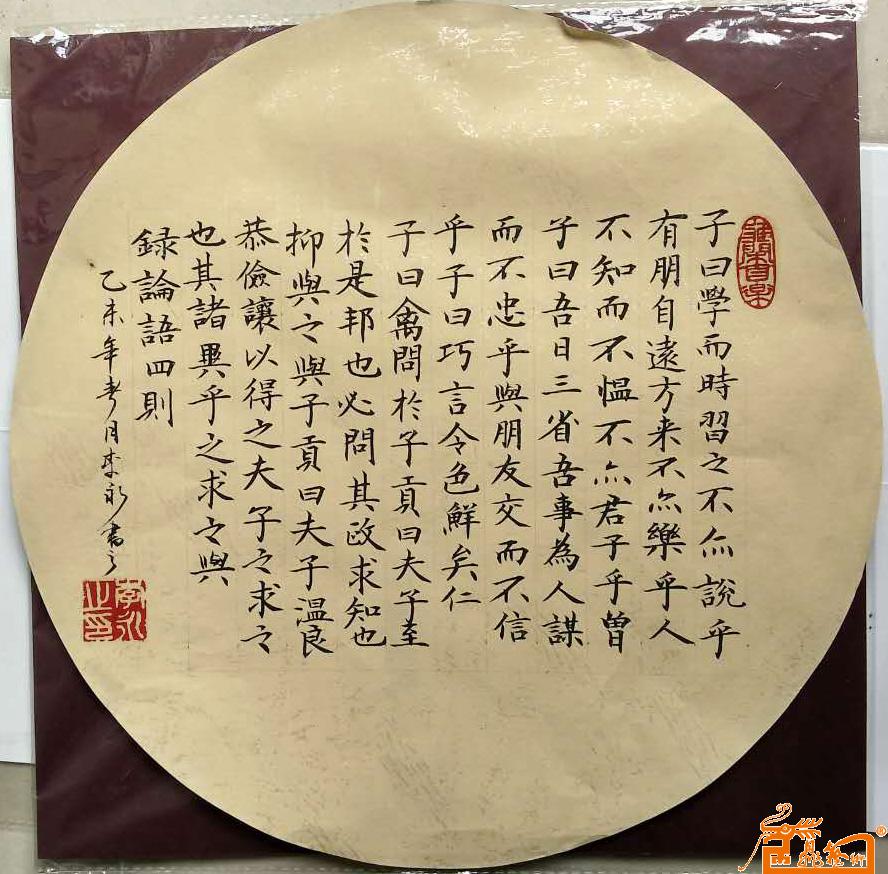 子曰學而時習之不亦說乎
有朋自遠方来不亦樂乎人
不知而不愠不亦君子乎曾
子曰吾日三省吾事為人謀
而不忠乎與朋友交而不信
乎子曰巧言令色鮮矣仁
子曰禽問於子貢曰夫子至
於是邦也必問其政求知也
抑與之與子貢曰夫子温良
恭儉讓以得之夫子之求之
也其諸異乎之求之與
録論語四則
乙未年 月 永書